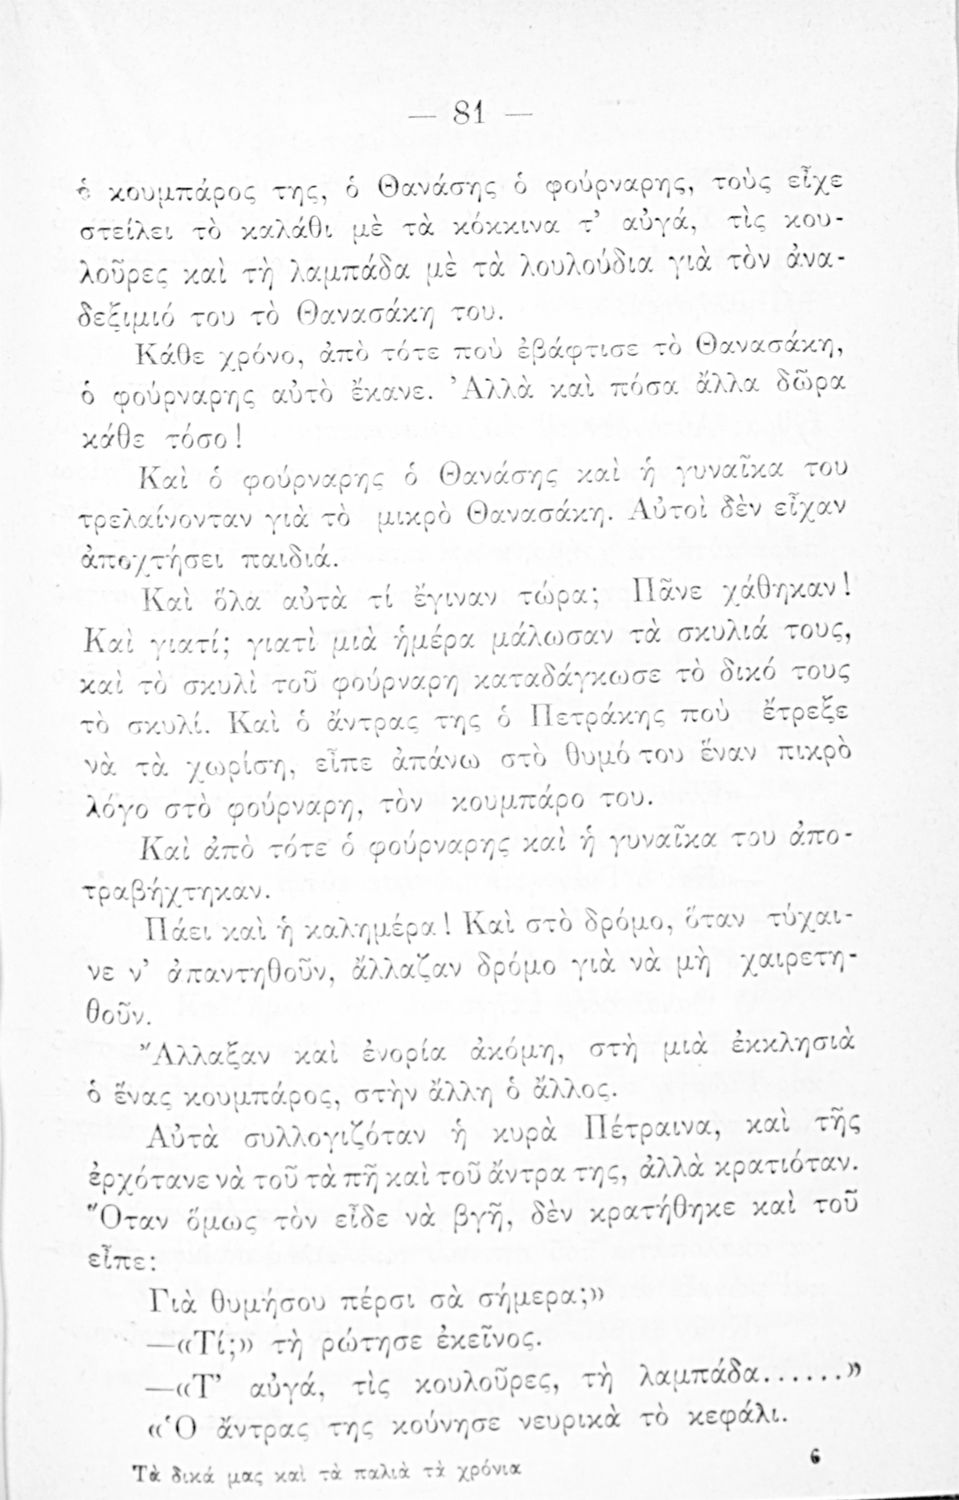 — 81 —
ὁ κουμπάρος της, ὁ Θανάσης ὁ φούρναρης, τοὺς εἶχε
στείλει τὸ καλάθι μὲ τὰ κόκκινα τ’ αὐγά, τὶς κου-
λοῦρες καὶ τὴ λαμπάδα μὲ τὰ λουλούδια γιὰ τὸν ἀνα-
δεξιμιό του τὸ Θανασάκη του.
Κάθε χρόνο, ἀπὸ τότε ποὺ ἐβάφτισε τὸ Θανασάκη,
ὁ φούρναρης αὐτὸ ἔκανε. Ἀλλὰ καὶ πόσα ἄλλα δῶρα
κάθε τόσο!
Καὶ ὁ φούρναρης ὁ Θανάσης καὶ ἡ γυναῖκα του
τρελαίνονταν γιὰ τὸ μικρὸ Θανασάκη. Αὐτοὶ δὲν εἶχαν
ἀποχτήσει παιδιά.
Καὶ ὅλα αὐτὰ τί ἔγιναν τώρα; Πᾶνε χάθηκαν!
Καὶ γιατί; γιατὶ μιὰ ἡμέρα μάλωσαν τὰ σκυλιά τους,
καὶ τὸ σκυλὶ τοῦ φούρναρη καταδάγκωσε τὸ δικό τους
τὸ σκυλί. Καὶ ὁ ἄντρας της ὁ Πετράκης ποὺ ἔτρεξε
νὰ τὰ χωρίση, εἶπε ἀπάνω στὸ θυμό του ἕναν πικρὸ
λόγο στὸ φούρναρη, τὸν κουμπάρο του.
Καὶ ἀπὸ τότε ὁ φούρναρης καὶ ἡ γυναῖκα του ἀπο-
τραβήχτηκαν.
Πάει καὶ ἡ καλημέρα! Καὶ στὸ δρόμο, ὅταν τύχαι-
νε ν’ ἀπαντηθοῦν, ἄλλαζαν δρόμο γιὰ νὰ μὴ χαιρετη-
θοῦν.
Ἄλλαξαν καὶ ἐνορία ἀκόμη, στὴ μιὰ ἐκκλησιὰ
ὁ ἕνας κουμπάρος, στὴν ἄλλη ὁ ἄλλος.
Αὐτὰ συλλογιζόταν ἡ κυρὰ Πέτραινα, καὶ τῆς
ἐρχότανε νὰ τοῦ τὰ πῆ καὶ τοῦ ἄντρα της, ἀλλὰ κρατιόταν.
Ὅταν ὅμως τὸν εἶδε νὰ βγῆ, δὲν κρατήθηκε καὶ τοῦ
εἶπε:
Γιὰ θυμήσου πέρσι σὰ σήμερα;»
—«Τί;» τὴ ρώτησε ἐκεῖνος.
—«Τ’ αὐγά, τὶς κουλοῦρες, τὴ λαμπάδα......»
«Ὁ ἄντρας της κούνησε νευρικὰ τὸ κεφάλι.
Τὰ δικά μας καὶ τὰ παλιὰ τὰ χρόνια 6